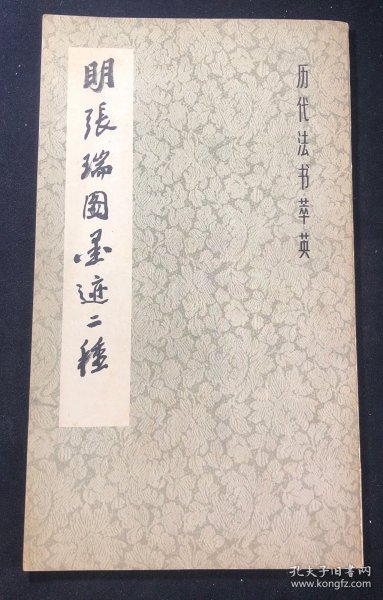 历代法书萃英
明張瑞图墨迹二種
孔夫子旧书网
www.kongfz.com